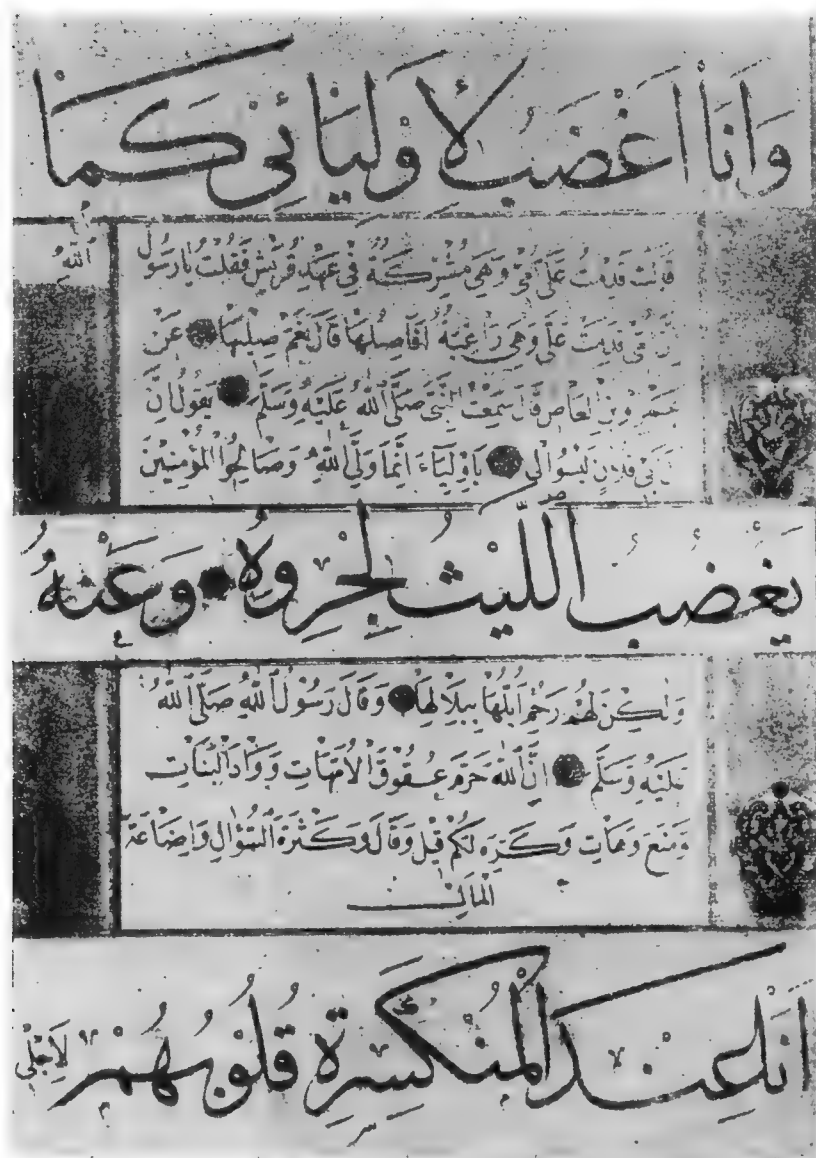 وَاَنَا اَغْضَبُ لِأَوْلِيَائِي كَمَا
قَالَتْ قَدِمَتْ عَلَيَّ أُمِّي وَهِيَ مُشْرِكَةٌ فِي عَهْدِ قُرَيْشٍ فَقُلْتُ يَا رَسُولَ
اللهِ
اِنَّ أُمِّي قَدِمَتْ عَلَيَّ وَهِيَ رَاغِبَةٌ أَفَأَصِلُهَا قَالَ نَعَمْ صِلِيهَا عَنْ
عَمْرِو بْنِ الْعَاصِ قَالَ سَمِعْتُ النَّبِيَّ صَلَّى اللهُ عَلَيْهِ وَسَلَّمَ يَقُولُ اِنَّ
اٰلَ أَبِي فُلَانٍ لَيْسُوا لِي بِأَوْلِيَاءَ اِنَّمَا وَلِيِّيَ اللهُ وَصَالِحُوا الْمُؤْمِنِيْنَ
يَغْضَبُ اللَّيْثُ لِجِرْوِهِ وَعَنْهُ
وَلٰكِنْ لَهُمْ رَحِمٌ اَبُلُّهَا بِبِلَالِهَا وَقَالَ رَسُوْلُ اللهِ صَلَّى اللهُ
عَلَيْهِ وَسَلَّمَ اِنَّ اللهَ حَرَّمَ عُقُوْقَ الْاُمَّهَاتِ وَوَأْدَ الْبَنَاتِ
وَمَنَعَ وَهَاتِ وَكَرِهَ لَكُمْ قِيْلَ وَقَالَ وَكَثْرَةَ السُّؤَالِ وَاِضَاعَةَ
الْمَالِ
اَنَا عِنْدَ الْمُنْكَسِرَةِ قُلُوْبُهُمْ لِاَجْلِي